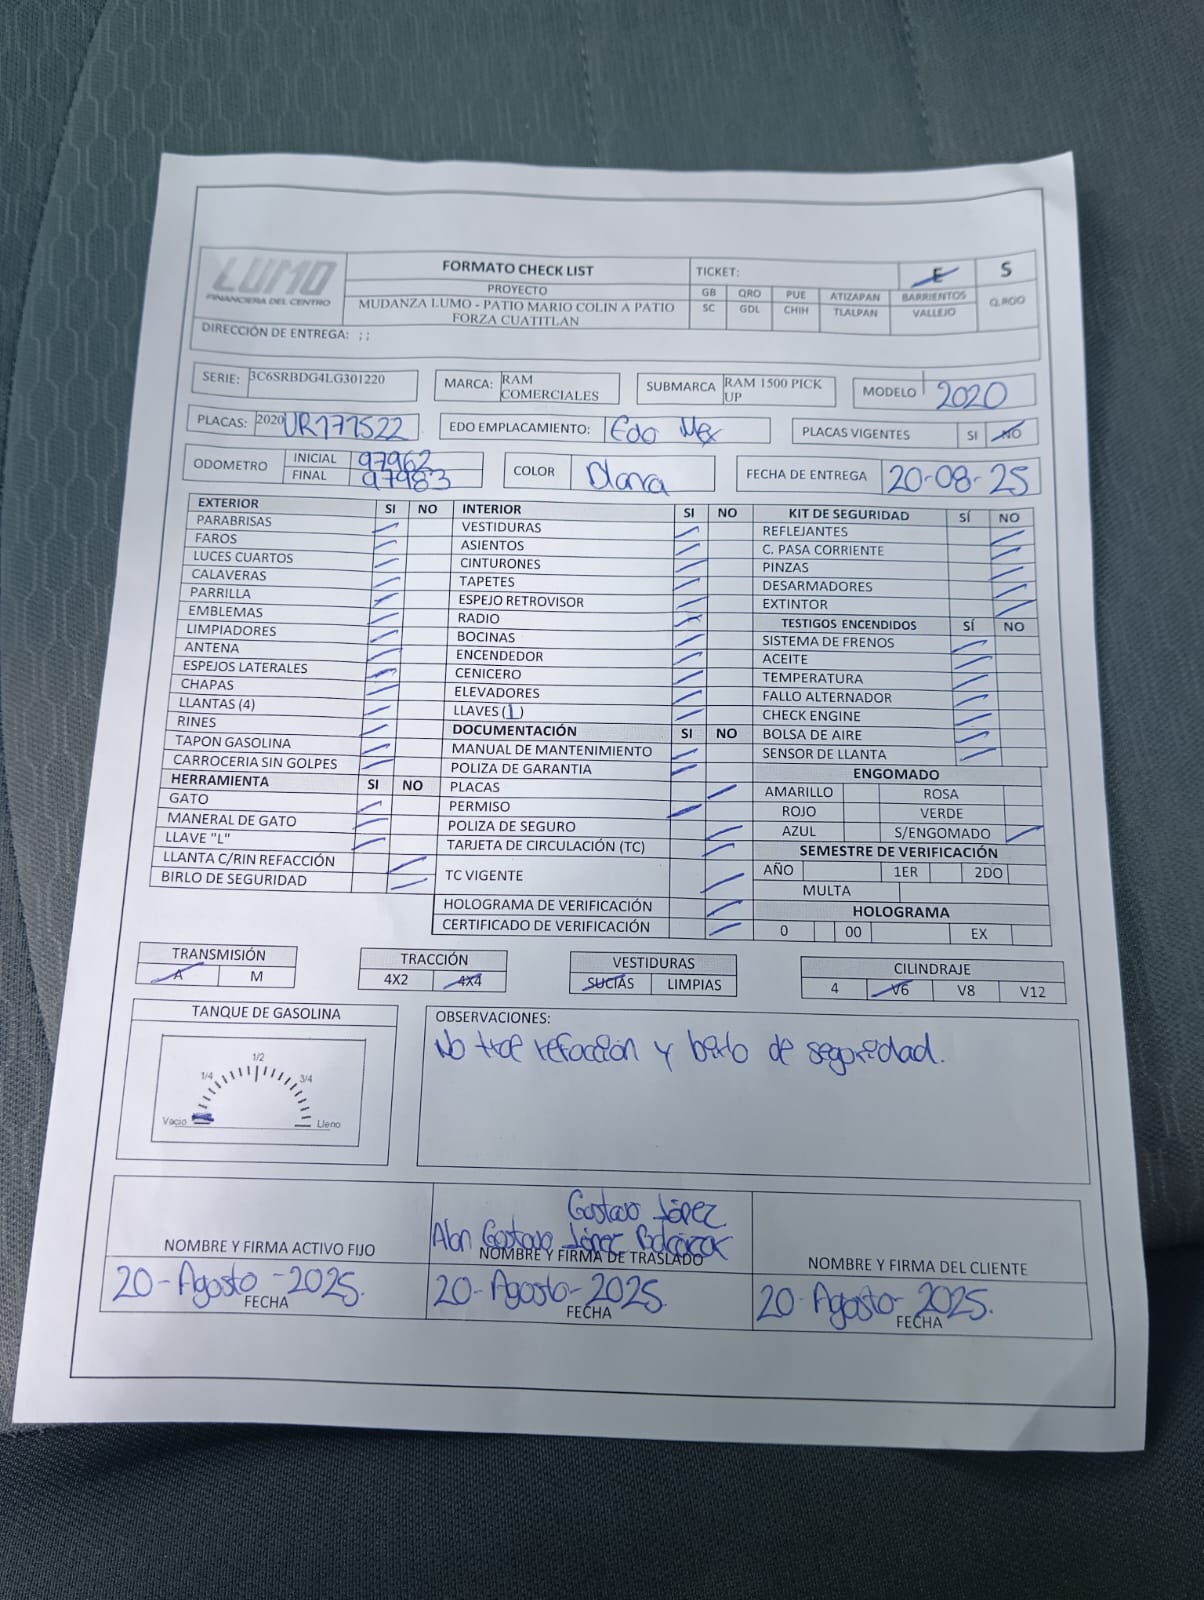 LUMO
FINANCIERA DEL CENTRO
FORMATO CHECK LIST
PROYECTO
MUDANZA LUMO - PATIO MARIO COLIN A PATIO
FORZA CUATITLAN
TICKET: E S
GB QRO PUE ATIZAPAN BARRIENTOS Q.ROO
SC GDL CHIH TLALPAN VALLEJO
DIRECCIÓN DE ENTREGA: ; ;
SERIE: 3C6SRBDG4LG301220
MARCA: RAM COMERCIALES
SUBMARCA RAM 1500 PICK UP
MODELO 2020
PLACAS: 2020 UR177522
EDO EMPLACAMIENTO: Edo Mex
PLACAS VIGENTES SI NO
ODOMETRO INICIAL 97962
FINAL 97983
COLOR
FECHA DE ENTREGA 20-08-25
EXTERIOR SI NO
PARABRISAS
FAROS
LUCES CUARTOS
CALAVERAS
PARRILLA
EMBLEMAS
LIMPIADORES
ANTENA
ESPEJOS LATERALES
CHAPAS
LLANTAS (4)
RINES
TAPON GASOLINA
CARROCERIA SIN GOLPES
HERRAMIENTA SI NO
GATO
MANERAL DE GATO
LLAVE "L"
LLANTA C/RIN REFACCIÓN
BIRLO DE SEGURIDAD
INTERIOR SI NO
VESTIDURAS
ASIENTOS
CINTURONES
TAPETES
ESPEJO RETROVISOR
RADIO
BOCINAS
ENCENDEDOR
CENICERO
ELEVADORES
LLAVES (1)
DOCUMENTACIÓN SI NO
MANUAL DE MANTENIMIENTO
POLIZA DE GARANTIA
PLACAS
PERMISO
POLIZA DE SEGURO
TARJETA DE CIRCULACIÓN (TC)
TC VIGENTE
HOLOGRAMA DE VERIFICACIÓN
CERTIFICADO DE VERIFICACIÓN
KIT DE SEGURIDAD SÍ NO
REFLEJANTES
C. PASA CORRIENTE
PINZAS
DESARMADORES
EXTINTOR
TESTIGOS ENCENDIDOS SÍ NO
SISTEMA DE FRENOS
ACEITE
TEMPERATURA
FALLO ALTERNADOR
CHECK ENGINE
BOLSA DE AIRE
SENSOR DE LLANTA
ENGOMADO
AMARILLO ROSA
ROJO VERDE
AZUL S/ENGOMADO
SEMESTRE DE VERIFICACIÓN
AÑO 1ER 2DO
MULTA
HOLOGRAMA
0 00 EX
TRANSMISIÓN
A M
TRACCIÓN
4X2 4X4
VESTIDURAS
SUCIAS LIMPIAS
CILINDRAJE
4 V6 V8 V12
TANQUE DE GASOLINA
1/2
1/4 3/4
Vacio Lleno
OBSERVACIONES:
No trae refacción y birlo de seguridad.
Gustavo López
Alan Gustavo López
NOMBRE Y FIRMA ACTIVO FIJO
NOMBRE Y FIRMA DE TRASLADO
NOMBRE Y FIRMA DEL CLIENTE
20-Agosto-2025.
FECHA
20-Agosto-2025.
FECHA
20-Agosto-2025.
FECHA